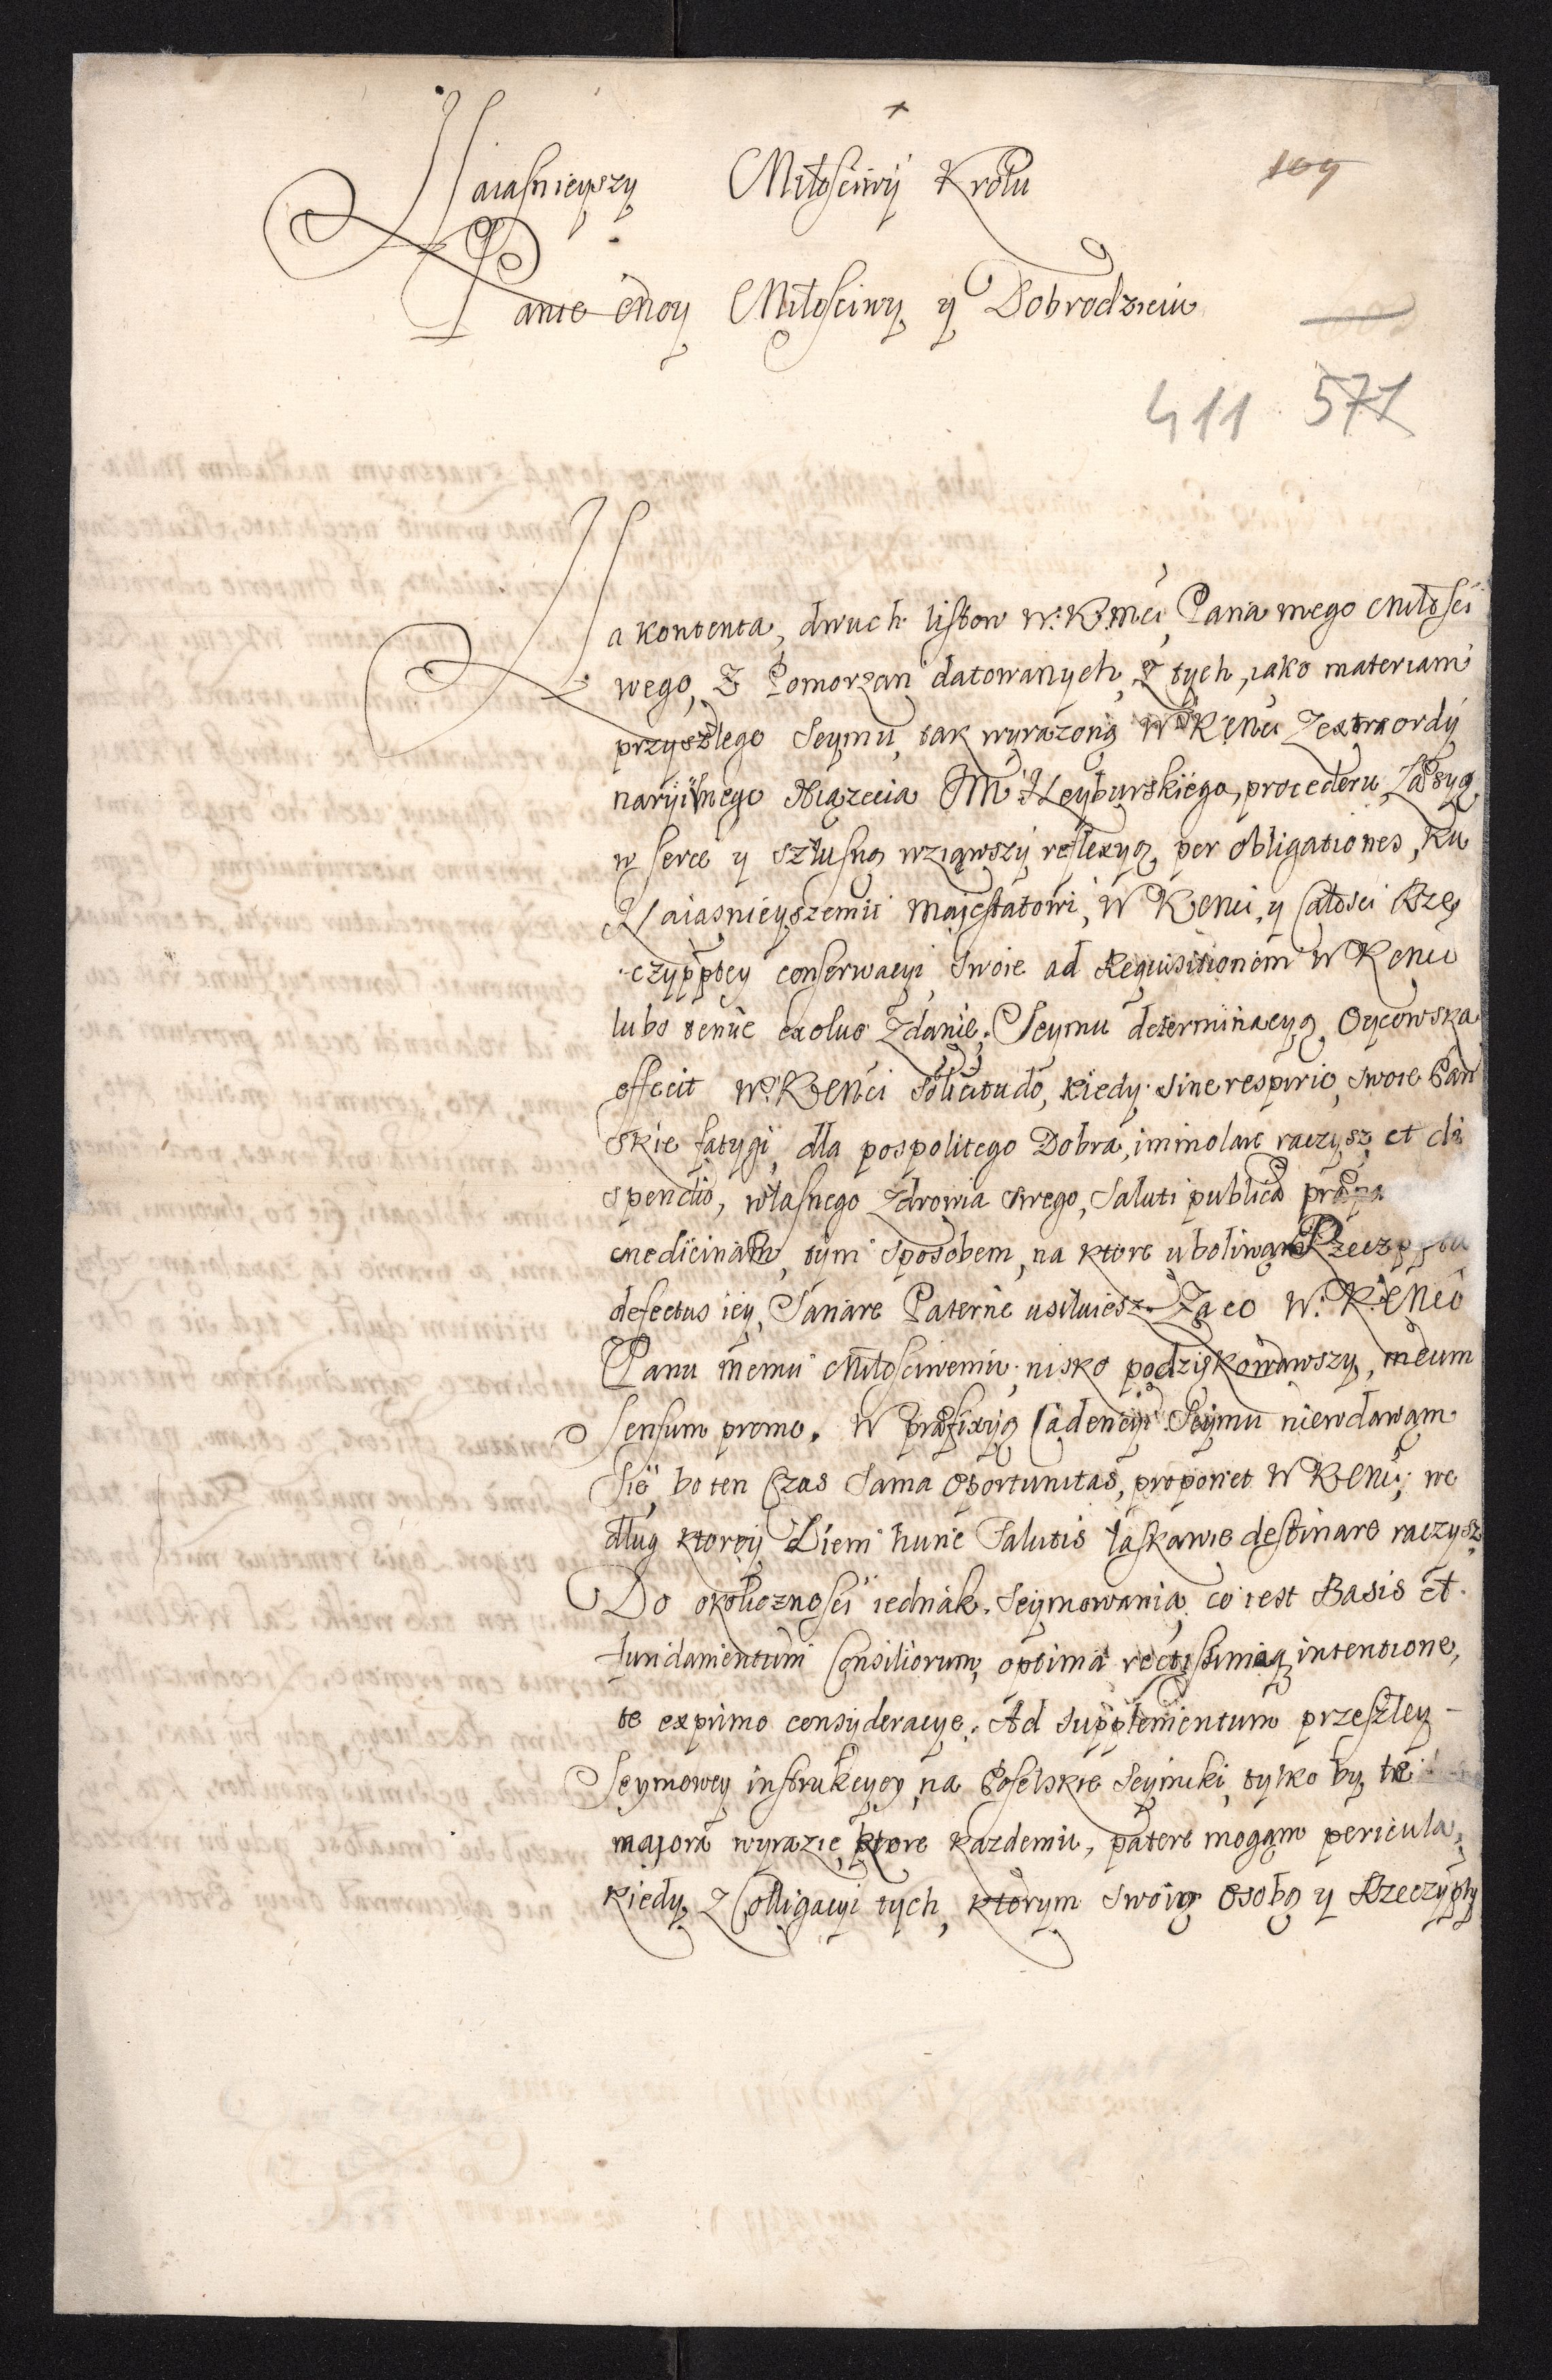 109
Naiasnieyszy Miłosciwÿ Krolu
Panie Moy Miłosciwy y Dobrodzieiu
411 571
Na kontenta, dwuch listow W: K: Mci Pana mego Miłosci
wego, Z Pomorzan datowanych, Z tych, iako materiam
przyszłego Seymu, tak wyrazoną W KMci Zextraordy
naryinego Xiązecia JM Neyburskiego, procederu,
w serce y szłusną wziąwszy reflexyą, per obligationes, ku
Naiasnieyszemu Majestatowi, W KMci, y Całosci Rze
czyppltey conserwacyi swoie ad Requisitionem W KMci
lubo tenue exoluo Zdanie. Seymu determinacyą, Oycowska
effecit W: KMci solicitudo, kiedy sine respirio, swoie Pan
skie fatygi, dla pospolitego Dobra, immolare raczysz, et di
spendio, własnego Zdrowia swego, Saluti publica
medicinam, tym sposobem, na ktore
defectus iey, Sanare Paterne usiłuiesz. Za co W. K. Mci
Panu memu Miłosciwemu, nisko podziękowawszy, meum
sensum promo. W præfixyą Cadencyi Seymu niewdawam
Się, bo ten Czas Sama Oportunitas, proponet W KMci, we
dług ktorey Diem hunc Salutis łaskawie destinare raczysz.
Do okolicznosci iednak. Seymowania, co iest Basis et
fundamentum Consiliorum, optima rectissimaq intentione,
te exprimo consyderacye. Ad supplementum przeszłey
Seymowey instrukcyey, na Poselskie Seymiki, tylko by te
majora wyrazic, ktore kazdemu, patere mogą pericula,
kiedy, Z Colligacyi tych, ktorym swoią Osobą y Rzeczyplty